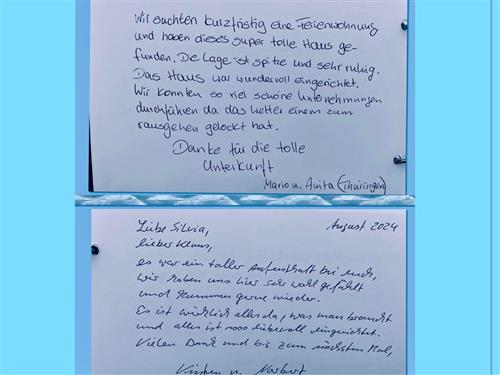 Wir suchten kurzfristig eine Ferienwohnung
und haben dieses super tolle Haus ge-
funden. Die Lage ist spitze und sehr ruhig.
Das Haus war wundervoll eingerichtet.
Wir konnten so viel schöne Unternehmungen
durchführen da das Wetter einem zum
rausgehen gelockt hat.
Danke für die tolle
Unterkunft
Mario u. Anita (Thüringen)
Liebe Silvia, August 2024
lieber Klaus,
es war ein toller Aufenthalt bei euch,
wir haben uns hier sehr wohl gefühlt
und kommen gerne wieder.
Es ist wirklich alles da, was man braucht
und alles ist sooo liebevoll eingerichtet.
Vielen Dank und bis zum nächsten Mal,
Kirsten u. Norbert